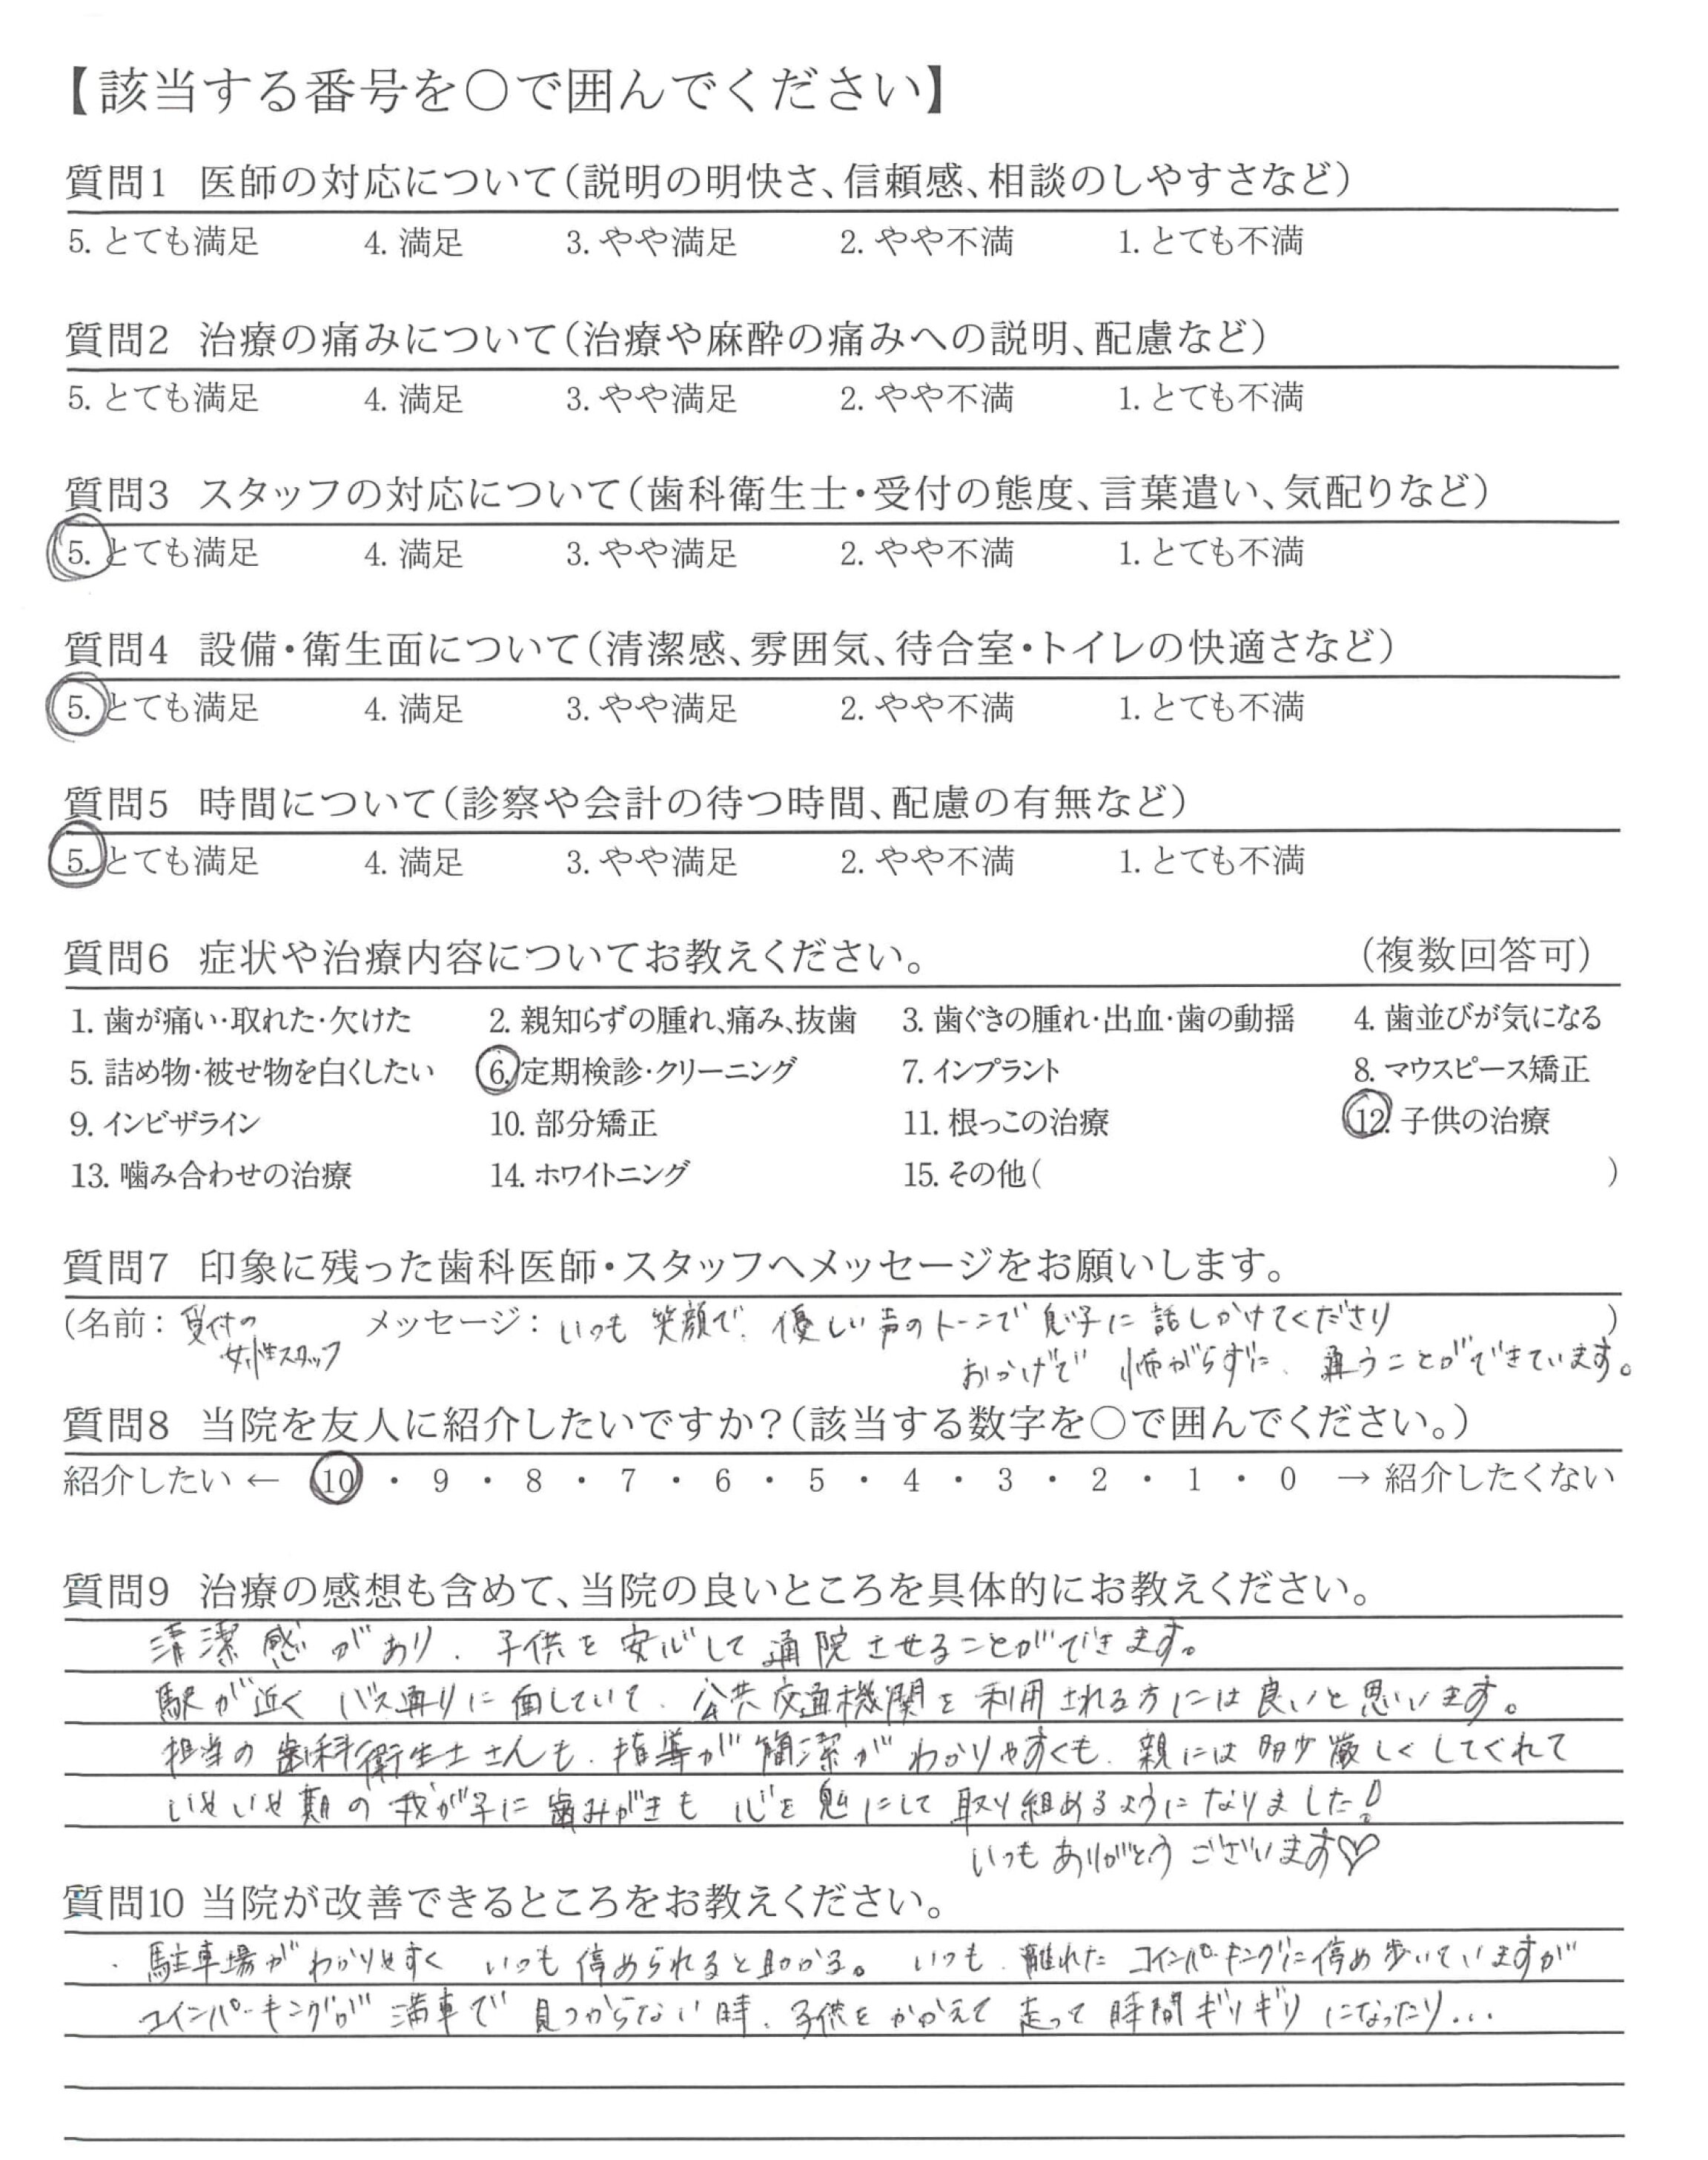 【該当する番号を〇で囲んでください】
質問1 医師の対応について（説明の明快さ、信頼感、相談のしやすさなど）
5. とても満足 4. 満足 3. やや満足 2. やや不満 1. とても不満
質問2 治療の痛みについて（治療や麻酔の痛みへの説明、配慮など）
5. とても満足 4. 満足 3. やや満足 2. やや不満 1. とても不満
質問3 スタッフの対応について（歯科衛生士・受付の態度、言葉遣い、気配りなど）
5. とても満足 4. 満足 3. やや満足 2. やや不満 1. とても不満
質問4 設備・衛生面について（清潔感、雰囲気、待合室・トイレの快適さなど）
5. とても満足 4. 満足 3. やや満足 2. やや不満 1. とても不満
質問5 時間について（診察や会計の待つ時間、配慮の有無など）
5. とても満足 4. 満足 3. やや満足 2. やや不満 1. とても不満
質問6 症状や治療内容についてお教えください。 （複数回答可）
1. 歯が痛い・取れた・欠けた 2. 親知らずの腫れ、痛み、抜歯 3. 歯ぐきの腫れ・出血・歯の動揺 4. 歯並びが気になる
5. 詰め物・被せ物を白くしたい 6. 定期検診・クリーニング 7. インプラント 8. マウスピース矯正
9. インビザライン 10. 部分矯正 11. 根っこの治療 12. 子供の治療
13. 噛み合わせの治療 14. ホワイトニング 15. その他（ ）
質問7 印象に残った歯科医師・スタッフへメッセージをお願いします。
（名前：受付の メッセージ：いつも 笑顔で、優しい声のトーンで息子に話しかけてくださり ）
女性スタッフ おかげで 怖がらずに、通うことができています。
質問8 当院を友人に紹介したいですか？（該当する数字を〇で囲んでください。）
紹介したい ← 10 ・ 9 ・ 8 ・ 7 ・ 6 ・ 5 ・ 4 ・ 3 ・ 2 ・ 1 ・ 0 → 紹介したくない
質問9 治療の感想も含めて、当院の良いところを具体的にお教えください。
清潔感があり、子供を安心して通院させることができます。
駅が近くバス通りに面していて、公共交通機関を利用される方には良いと思います。
担当の歯科衛生士さんも、指導が簡潔がわかりやすくも、親には多少厳しくしてくれて
いやいや期の我が子に歯みがきも心を鬼にして取り組めるようになりました！
いつもありがとうございます♡
質問10 当院が改善できるところをお教えください。
・駐車場がわかりやすく いつも停められると助かる。いつも、離れたコインパーキングに停め歩いていますが
コインパーキングが満車で見つからない時、子供をかかえて走って時間ギリギリになったり…